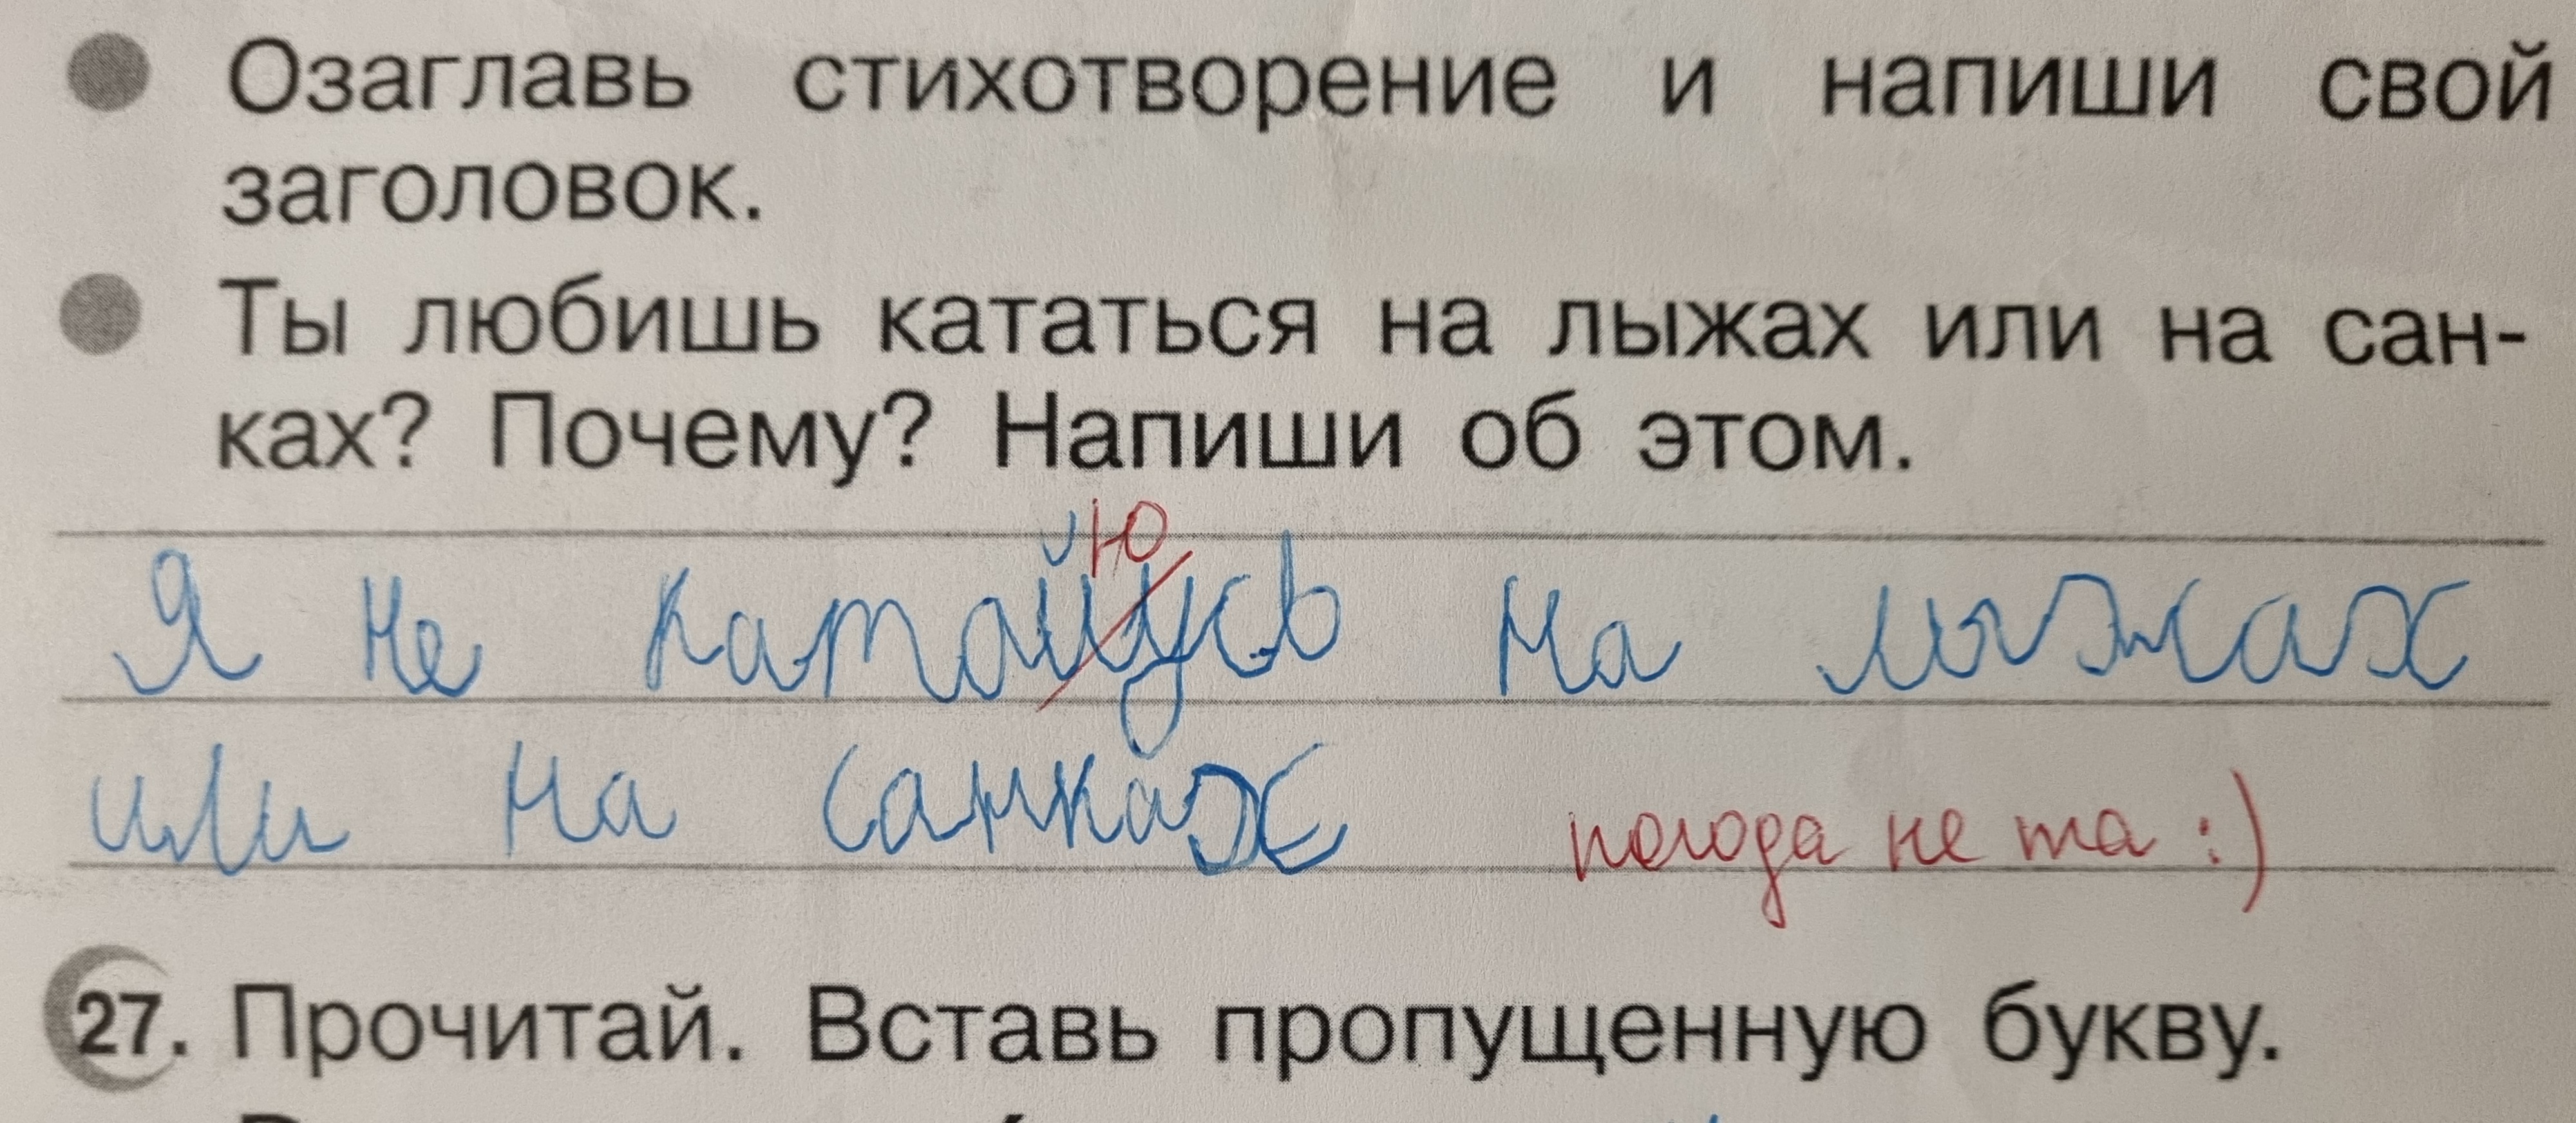 Озаглавь стихотворение и напиши свой
заголовок.
Ты любишь кататься на лыжах или на сан-
ках? Почему? Напиши об этом.
ю
Я не катайусь на лыжах
или на санках погода не та :)
27. Прочитай. Вставь пропущенную букву.